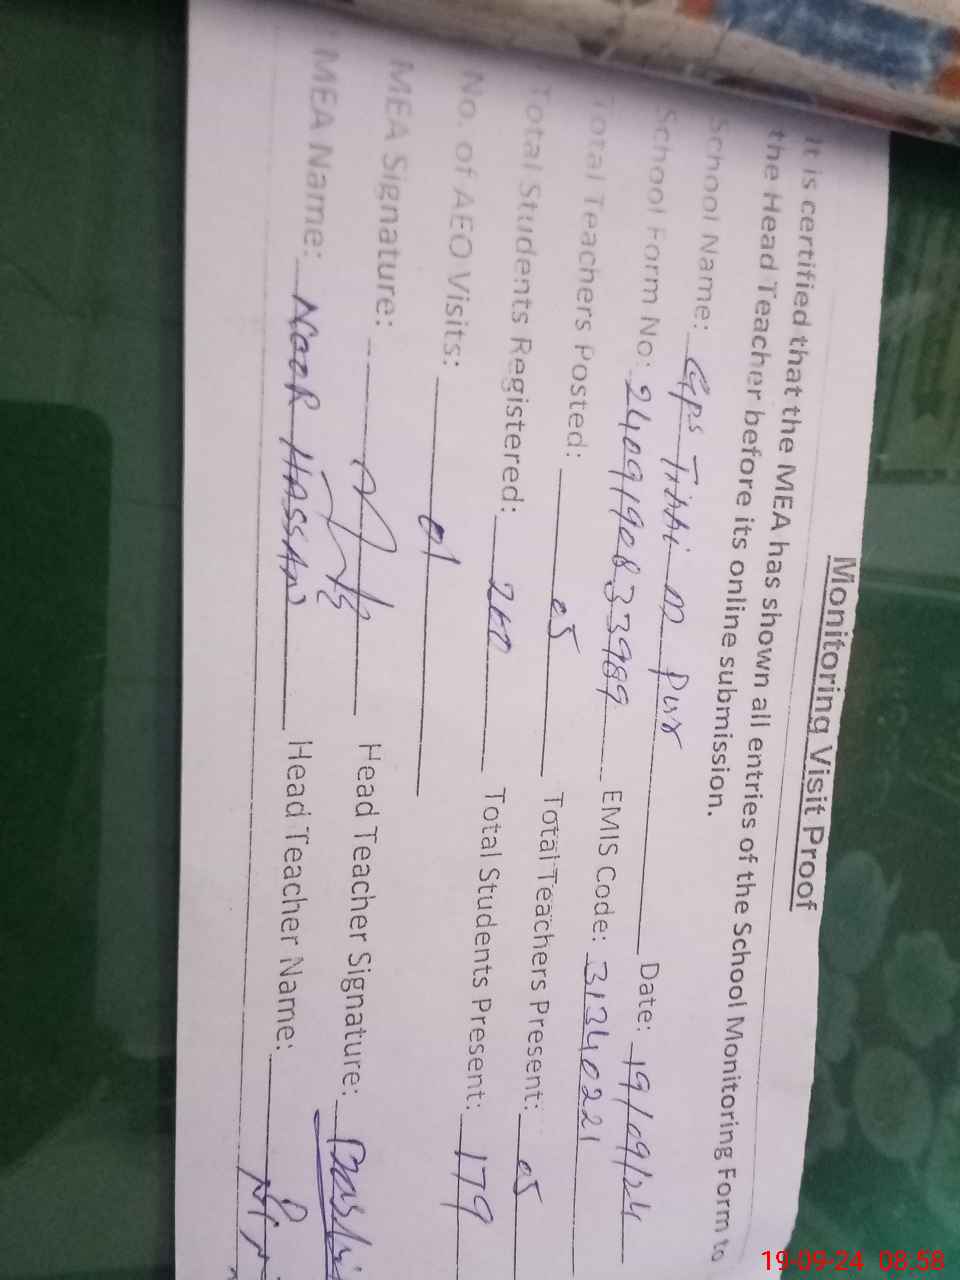 Monitoring Visit Proof
It is certified that the MEA has shown all entries of the School Monitoring Form to
the Head Teacher before its online submission.
School Name: GPS Date: 19/09/24
School Form No: 2409190833989 EMIS Code: 31340221
Total Teachers Posted: 05 Total Teachers Present: 05
Total Students Registered: Total Students Present: 179
No. of AEO Visits: 01
MEA Signature: Head Teacher Signature:
MEA Name: NOOR HASSAN Head Teacher Name:
19-09-24 08:58